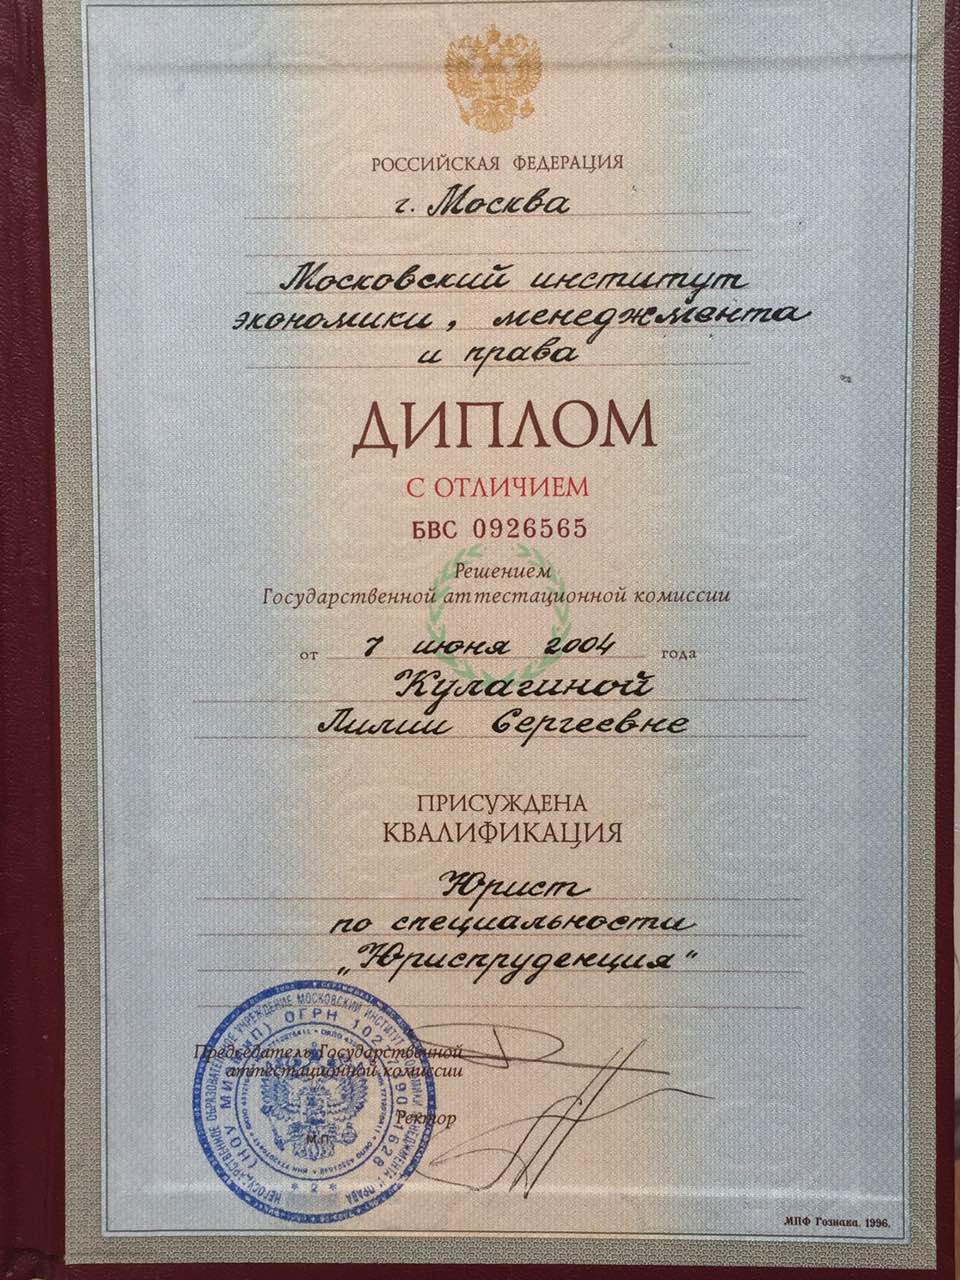 РОССИЙСКАЯ ФЕДЕРАЦИЯ
г. Москва
Московский институт
экономики, менеджмента
и права
ДИПЛОМ
С ОТЛИЧИЕМ
БВС 0926565
Решением
Государственной аттестационной комиссии
от 7 июня 2004 года
Кулагиной
Лилии Сергеевне
ПРИСУЖДЕНА
КВАЛИФИКАЦИЯ
Юрист
по специальности
„Юриспруденция“
Председатель Государственной
аттестационной комиссии
Ректор
М.П.
МПФ Гознака. 1996.